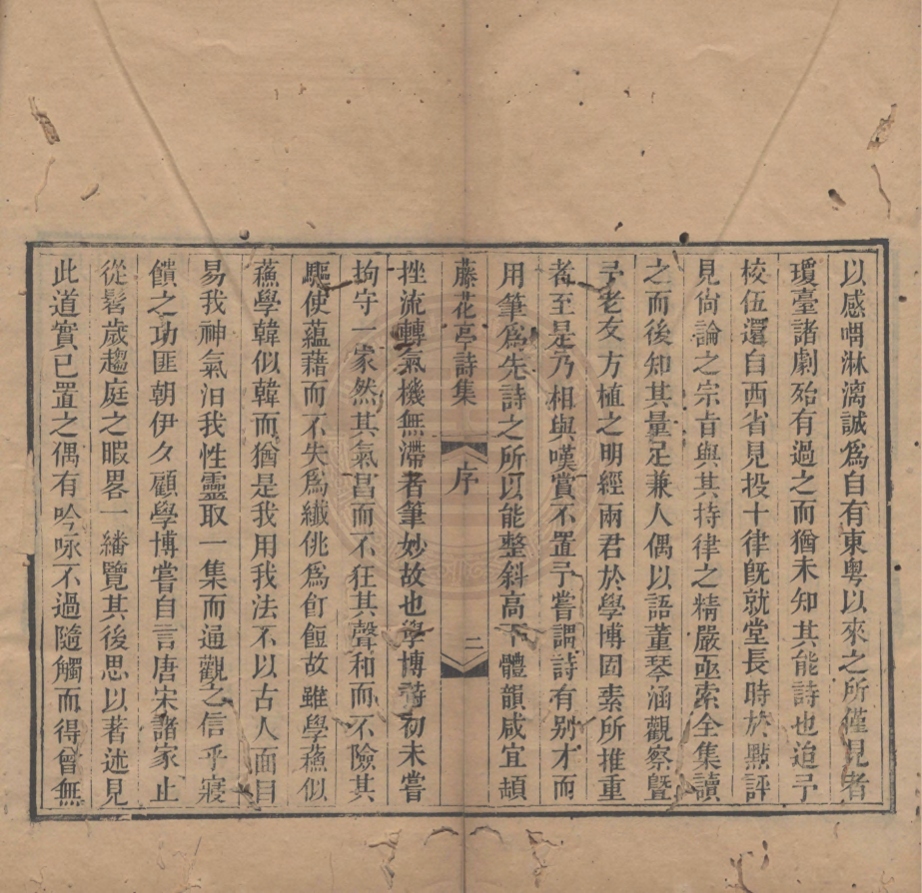 以感喟淋漓誠爲自有東粵以來之所僅見者
瓊臺諸劇殆有過之而猶未知其能詩也迨予
校伍還自西省見投十律旣就堂長時於㸃評
見尙論之宗旨與其持律之精嚴亟索全集讀
之而後知其量足兼人偶以語董琴涵觀察曁
予老友方植之明經兩君於學博固素所推重
者至是乃相與嘆賞不置予嘗謂詩有别才而
用筆爲先詩之所以能整斜高下體韻咸宜頓
藤花亭詩集
序
二
挫流轉氣機無滯者筆妙故也學博詩初未嘗
拘守一家然其氣昌而不狂其聲和而不險其
驅使蘊藉而不失爲纖佻爲飣餖故雖學蘓似
蘓學韓似韓而猶是我用我法不以古人面目
易我神氣汨我性靈取一集而通觀之信乎寢
饋之功匪朝伊久顧學博嘗自言唐宋諸家止
從髫歲趨庭之暇畧一繙覽其後思以著述見
此道實已置之偶有吟咏不過隨觸而得曾無